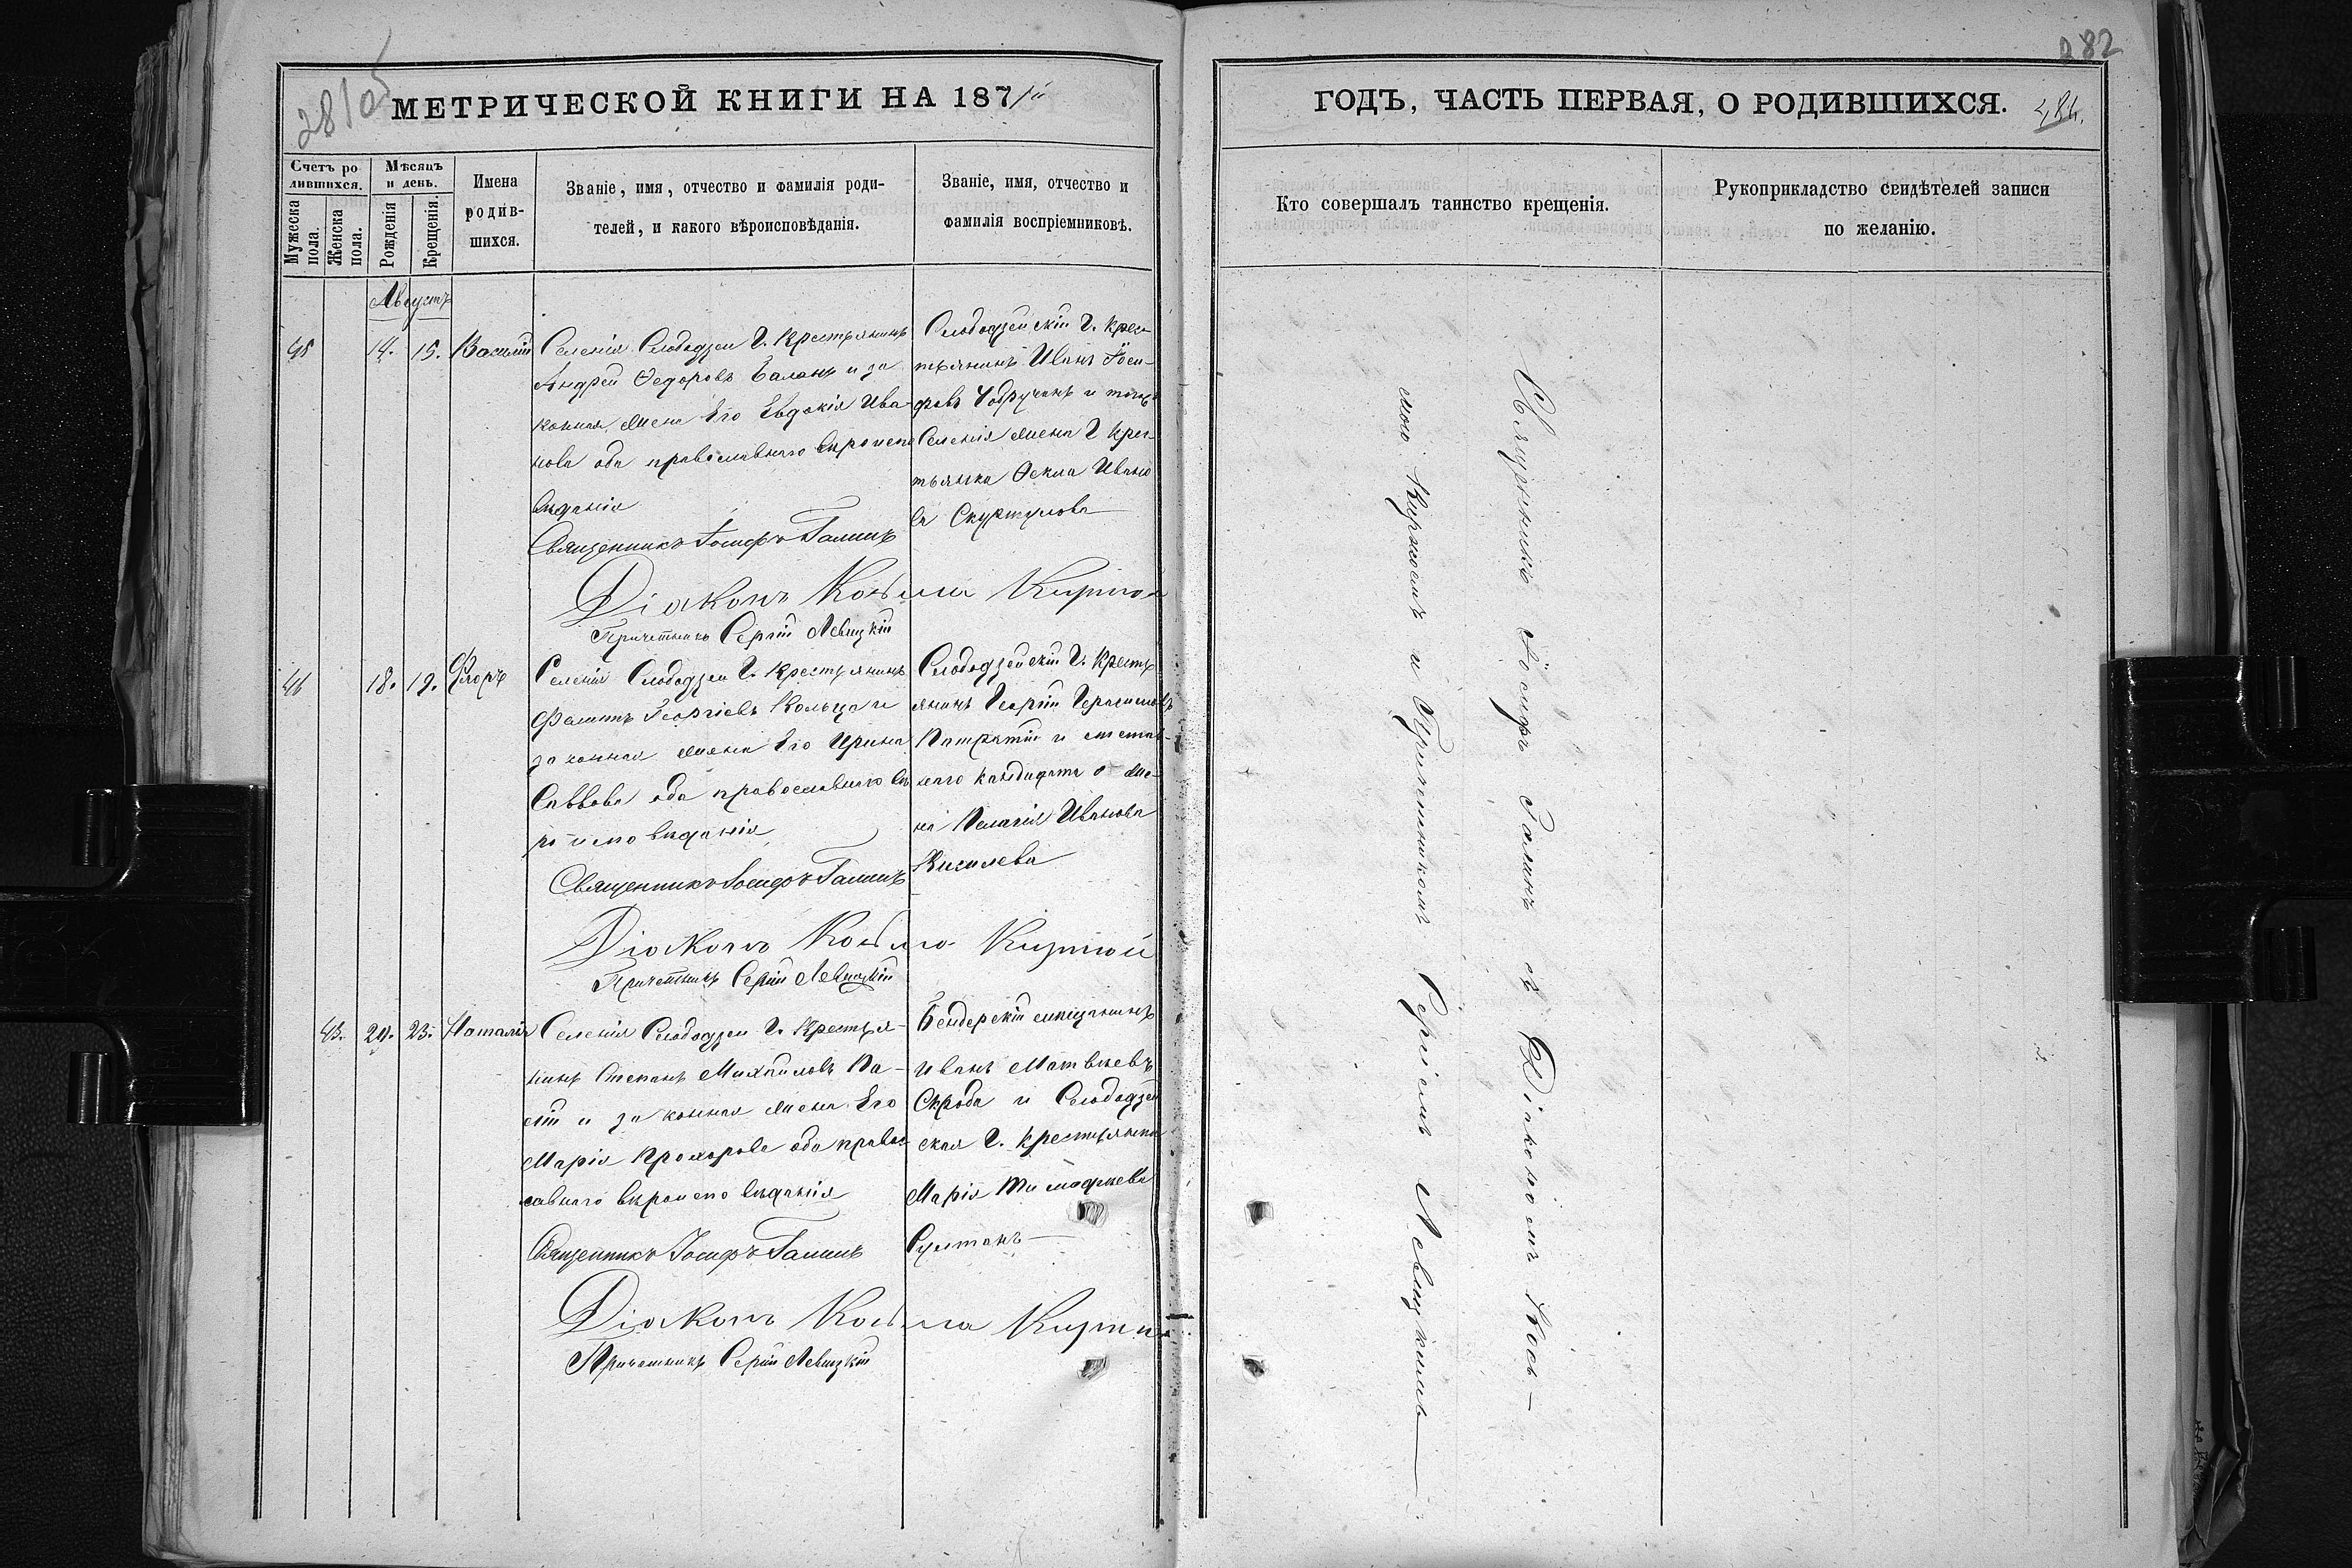 28105
МЕТРИЧЕСКОЙ КНИГИ НА 1871й
Счетъ ро-
дившихся.
Мужеска
пола.
Женска
пола.
Мѣсяцъ
и день.
Рожденія
Крещенія.
Имена
родив-
шихся.
Званіе, имя, отчество и фамилія роди-
телей, и какого вѣроисповѣданія.
Званіе, имя, отчество и
фамилія воспріемниковъ.
Августъ
45 14. 15. Василій
Селенія Слободзеи Г. Крестьянинъ
Андрей Ѳедоровъ Баланъ и за
конная жена Его Евдокія Ива
нова оба православнаго вѣроиспо
вѣданія
Священникъ Іосифъ Галинъ
Діаконъ Косьма
Причетникъ Сергій Левицкій
Слободзейскій Г. Крес-
тьянинъ Иванъ Іоси-
фовъ Чобручанъ и тогожъ
Селенія жена Г Крес-
тьянка Ѳекла Ивано
ва Скуртулова
46 18. 19. Флоръ
Селенія Слободзеи Г. Крестьянинъ
Филипъ Георгіевъ Кольца и
законная жена Его Ирина
Саввова оба православнаго вѣ
роисповѣданія
Священникъ Іосифъ Галинъ
Діаконъ Косьма
Причетникъ Сергій Левицкій
Слободзейскій Г. Кресть
янинъ Георгій Герасимовъ
наго кандидата жена
на Пелагія Иванова
Киселева
43. 20. 23. Наталія
Селенія Слободзеи Г. Крестья-
нинъ Степанъ Михайловъ Па-
сій и законная жена Его
Марія Прохорова оба правос
лавнаго вѣроисповѣданія
Священникъ Іосифъ Галинъ
Діаконъ Косьма
Причетникъ Сергій Левицкій
Бендерскій мѣщанинъ
Иванъ Матвѣевъ
Скрода и Слободзей
ская Г. крестьянка
Марія Тимофѣева
Султанъ
282
ГОДЪ, ЧАСТЬ ПЕРВАЯ, О РОДИВШИХСЯ.
484.
Кто совершалъ таинство крещенія.
Рукоприкладство свидѣтелей записи
по желанію.
Священникъ Іосифъ Галинъ съ Діакономъ Кось-
мою и Причетникомъ Сергіемъ Левицкимъ